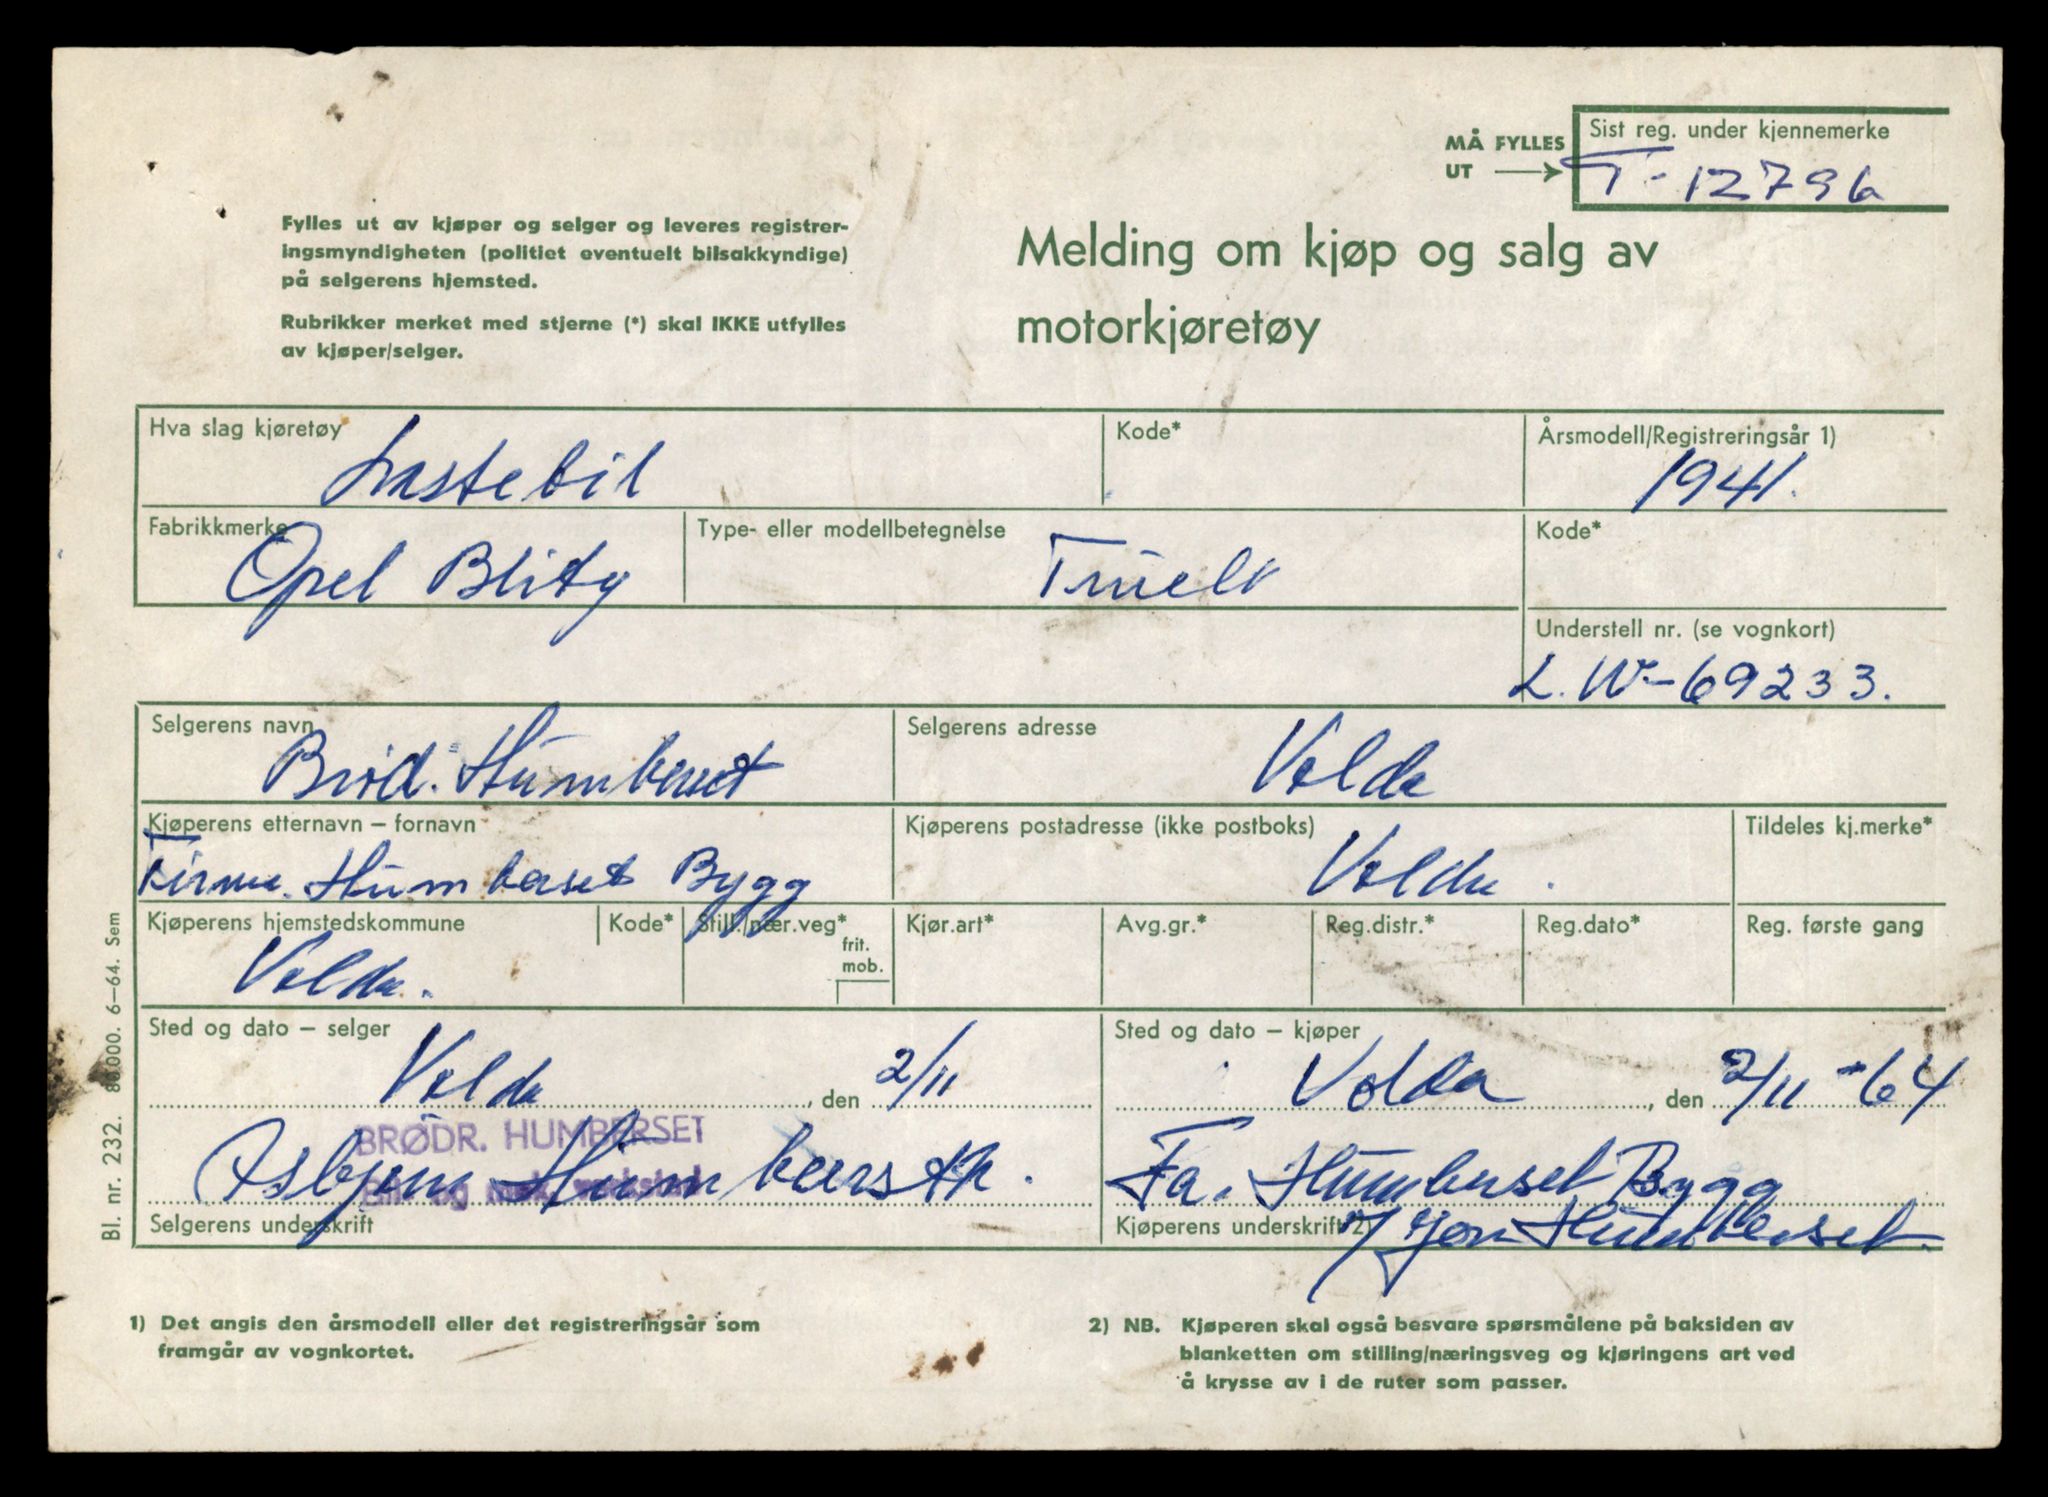 MÅ FYLLES
UT
Sist reg. under kjennemerke
T-12796
Fylles ut av kjøper og selger og leveres registrer-
ingsmyndigheten (politiet eventuelt bilsakkyndige)
på selgerens hjemsted.
Rubrikker merket med stjerne (*) skal IKKE utfylles
av kjøper/selger.
Melding om kjøp og salg av
motorkjøretøy
Hva slag kjøretøy
Lastebil
Kode*
Årsmodell/Registreringsår 1)
1941.
Fabrikkmerke
Opel Blitz
Type- eller modellbetegnelse
Kode*
Understell nr. (se vognkort)
L.W-69233.
Selgerens navn
Brød. Humberset
Selgerens adresse
Volda
Kjøperens etternavn – fornavn
Firma. Humberset Bygg
Kjøperens postadresse (ikke postboks)
Volda.
Tildeles kj.merke*
Kjøperens hjemstedskommune
Volda.
Kode*
Still./nær.veg*
frit.
mob.
Kjør.art*
Avg.gr.*
Reg.distr.*
Reg.dato*
Reg. første gang
Sted og dato – selger
Volda, den 2/11
BRØDR. HUMBERSET
Bil- og mek. verksted
Asbjørn Humberseth.
Selgerens underskrift
Sted og dato – kjøper
Volda, den 2/11-64
Fa. Humberset Bygg
Kjøperens underskrift 2)
Humberset.
Bl. nr. 232. 80.000. 6–64. Sem
1) Det angis den årsmodell eller det registreringsår som
framgår av vognkortet.
2) NB. Kjøperen skal også besvare spørsmålene på baksiden av
blanketten om stilling/næringsveg og kjøringens art ved
å krysse av i de ruter som passer.